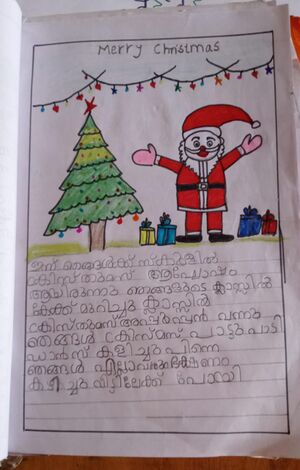 Merry Christmas
ഇന്ന് ഞങ്ങൾക്ക് സ്കൂളിൽ
ക്രിസ്തുമസ് ആഘോഷം
ആയിരുന്നു ഞങ്ങളുടെ ക്ലാസ്സിൽ
കേക്ക് മുറിച്ചു ക്ലാസ്സിൽ
ക്രിസ്തുമസ് അപ്പൂപ്പൻ വന്നു
ഞങ്ങൾ ക്രിസ്മസ് പാട്ടും പാടി
ഡാൻസ് കളിച്ചു പിന്നെ
ഞങ്ങൾ എല്ലാവരും ഭക്ഷണം
കഴിച്ചു വീട്ടിലേക്ക് പോയി